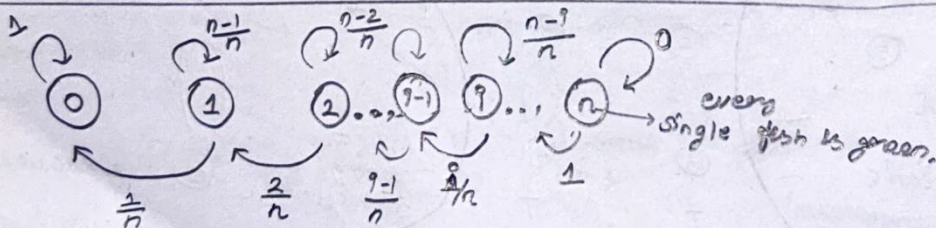 1 n-1/n n-2/n n-i/n 0
0 1 2 ... i-1 i ... n every
single fish is green.
1/n 2/n i-1/n i/n 1